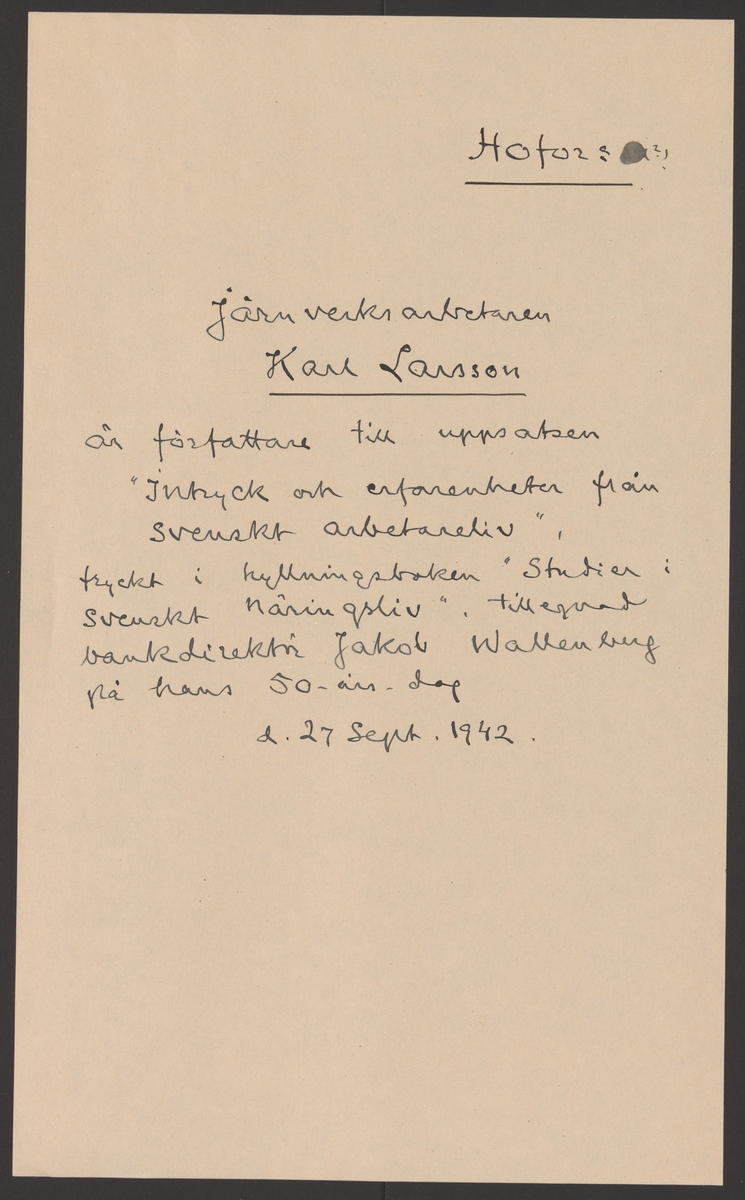 Hofors
Järnverksarbetaren
Karl Larsson
är författare till uppsatsen
"Intryck och erfarenheter från
svenskt arbetareliv",
tryckt i hyllningsboken "Studier i
svenskt näringsliv", tillegnad
bankdirektör Jakob Wallenberg
på hans 50-års-dag
d. 27 Sept. 1942.